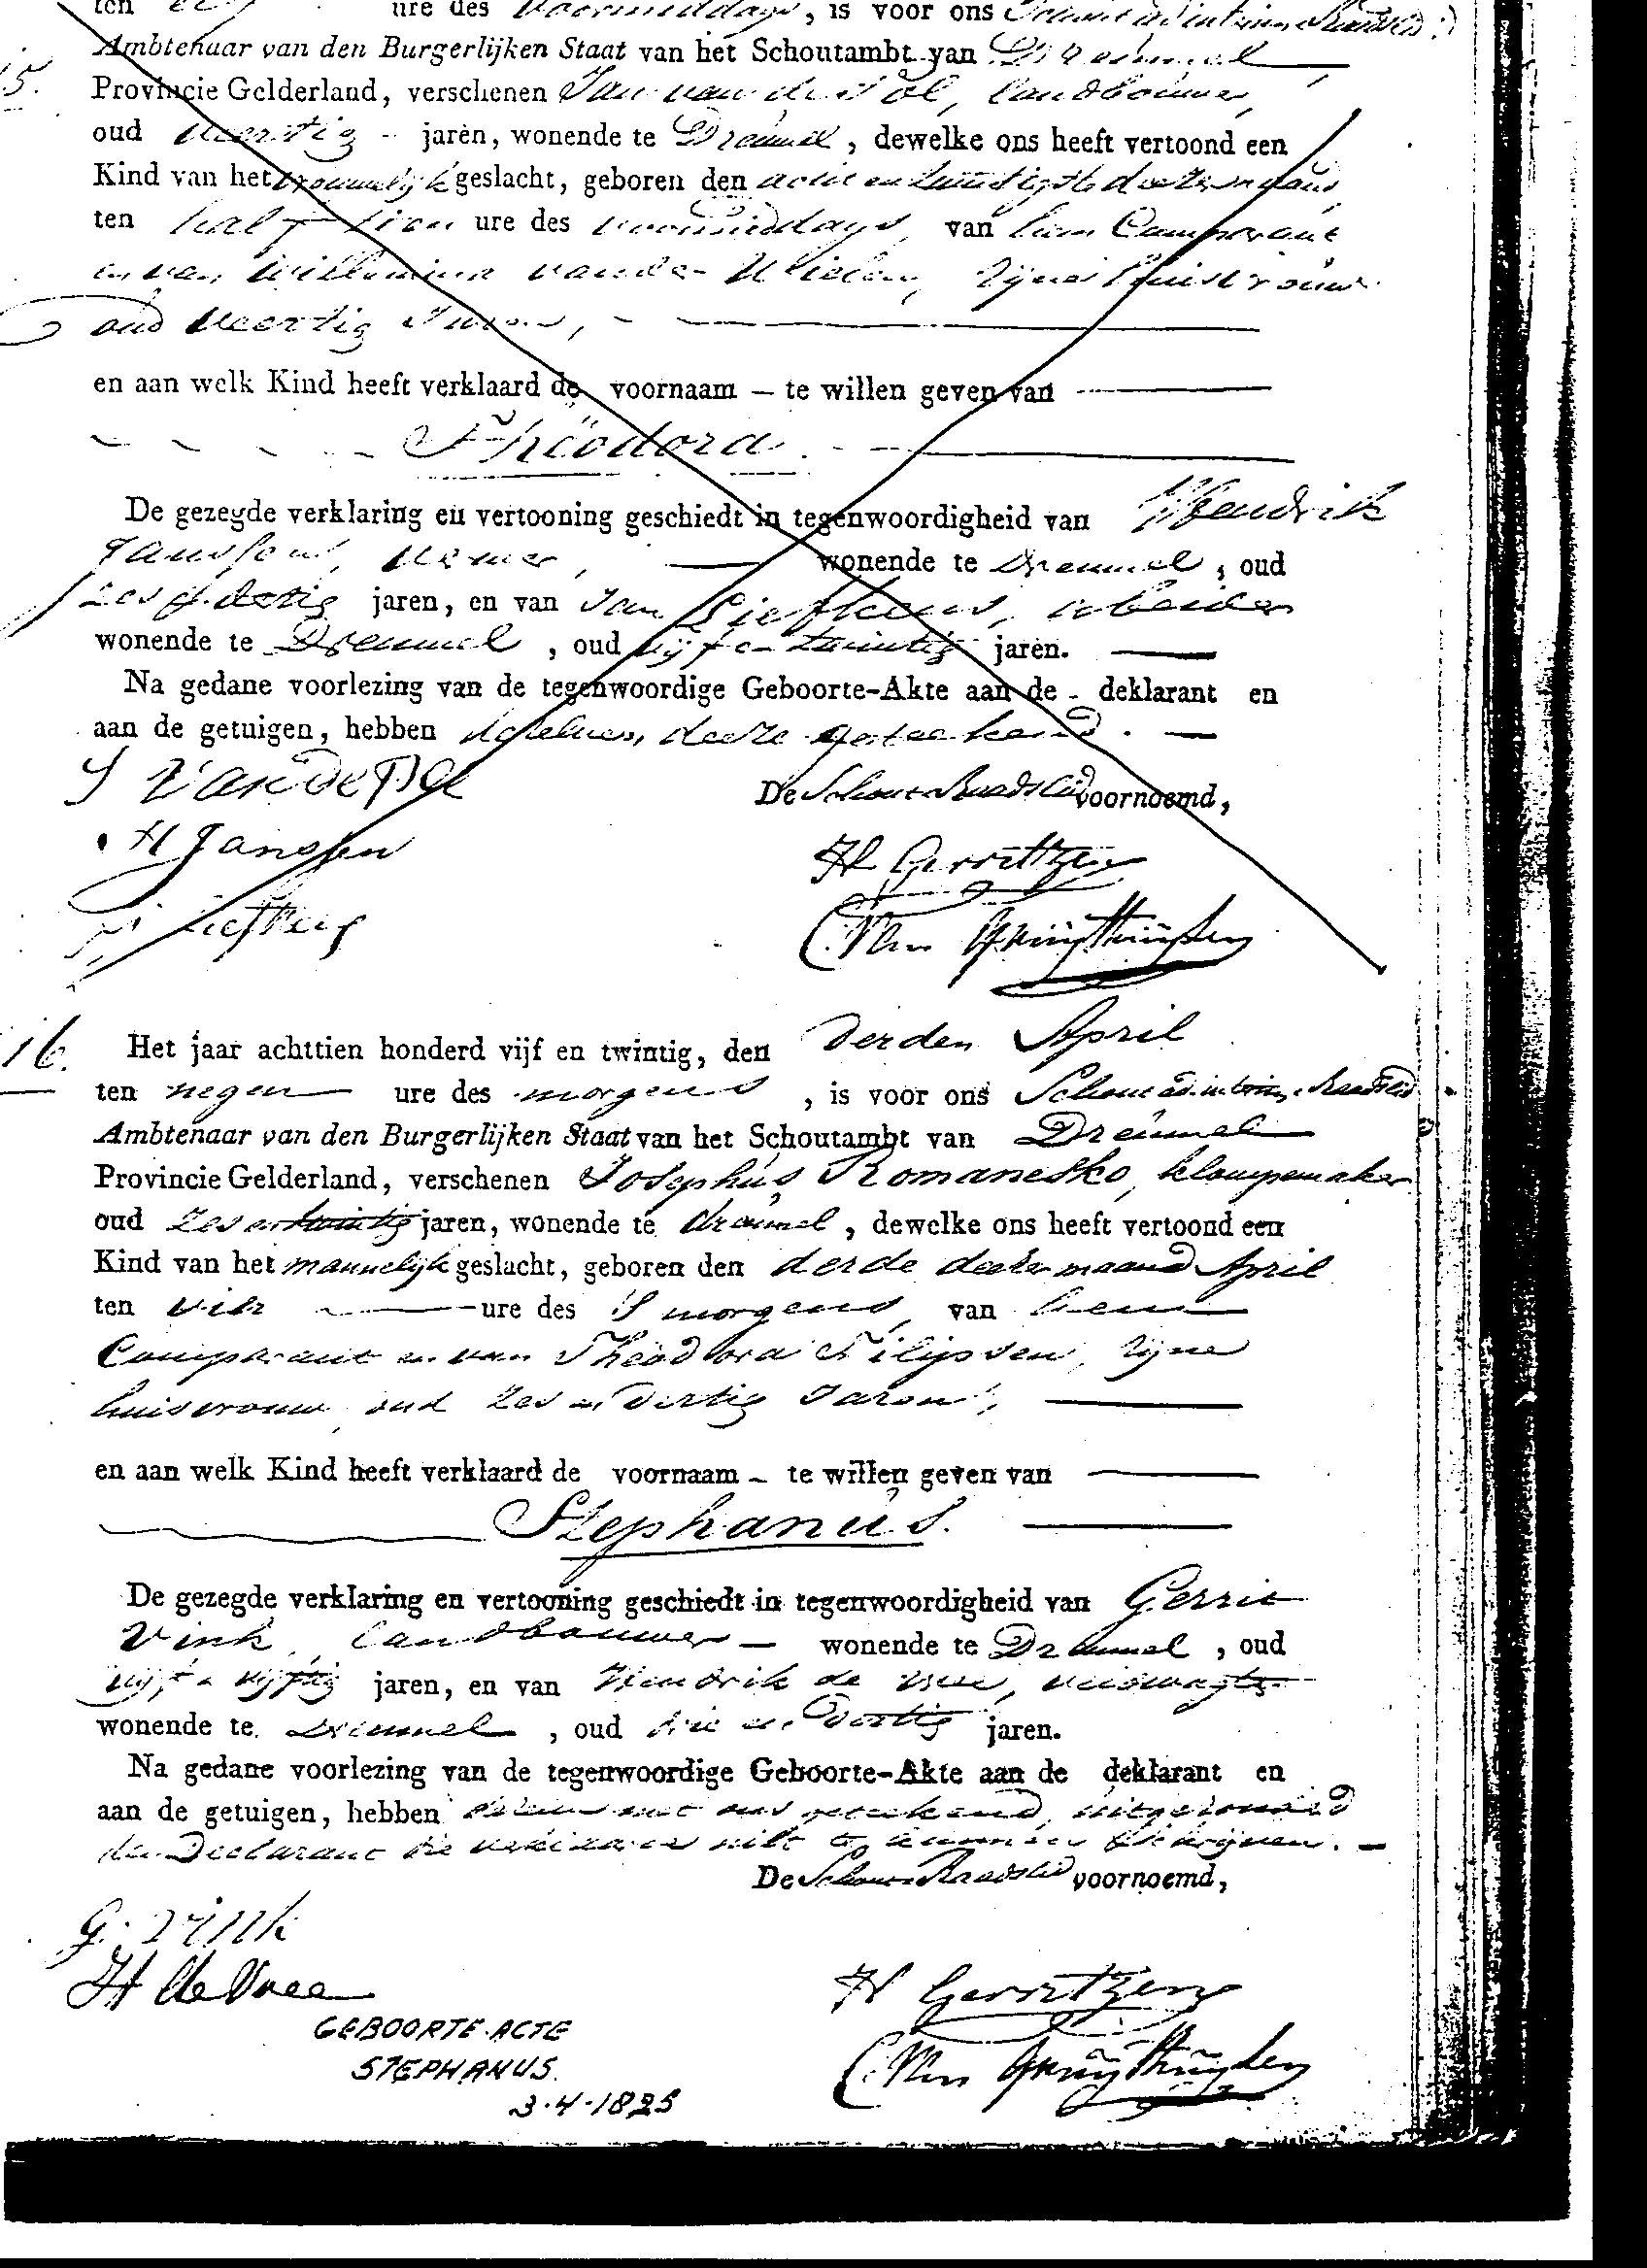 ten ure des voormiddags, is voor ons Schout ad interim Raadslid
Ambtenaar van den Burgerlijken Staat van het Schoutambt van Dreumel
15.
Provincie Gelderland, verschenen Jan van de Pol, landbouwer,
oud veertig jaren, wonende te Dreumel, dewelke ons heeft vertoond een
Kind van het vrouwelijk geslacht, geboren den acht en twintigste dezer maand
ten half tien ure des voormiddags, van hem Comparant
en van Willemina van der Wielen, zijne huisvrouw
oud veertig Jaren,
en aan welk Kind heeft verklaard de voornaam – te willen geven van
Theodora
De gezegde verklaring en vertooning geschiedt in tegenwoordigheid van Hendrik
Janssen, wonende te Dreumel, oud
zes en dertig jaren, en van Jan Liefkens, arbeider
wonende te Dreumel, oud vijf en twintig jaren.
Na gedane voorlezing van de tegenwoordige Geboorte-Akte aan de - deklarant en
aan de getuigen, hebben dezelven deeze geteekend.
J van de Pol
De Schout Raadslid voornoemd,
H Janssen
H Gerritzen
J Liefkens
C. Van
16. Het jaar achttien honderd vijf en twintig, den derden April
ten negen ure des morgens, is voor ons Schout ad interim Raadslid
Ambtenaar van den Burgerlijken Staat van het Schoutambt van Dreumel
Provincie Gelderland, verschenen Josephus Romanesko, klompemaker
oud zes en twintig jaren, wonende te dreumel, dewelke ons heeft vertoond een
Kind van het mannelijk geslacht, geboren den derde dezer maand April
ten vier ure des S morgens, van hem
Comparant en van Theodora Filipsen, zijne
huisvrouw, oud zes en dertig Jaren,
en aan welk Kind heeft verklaard de voornaam – te willen geven van
Stephanus.
De gezegde verklaring en vertooning geschiedt in tegenwoordigheid van Gerrit
Vink, landbouwer – wonende te Dreumel, oud
vijf en vijftig jaren, en van Hendrik de Vree, veldwagter
wonende te Dreumel, oud drie en dertig jaren.
Na gedane voorlezing van de tegenwoordige Geboorte-Akte aan de deklarant en
aan de getuigen, hebben deze met ons geteekend, uitgezonderd
den Declarant die verklaarde niet te kunnen schrijven.
De Schout Raadslid voornoemd,
G. Vink
H de Vree
H Gerritzen
GEBOORTE-ACTE
STEPHANUS.
C. Van
3-4-1825